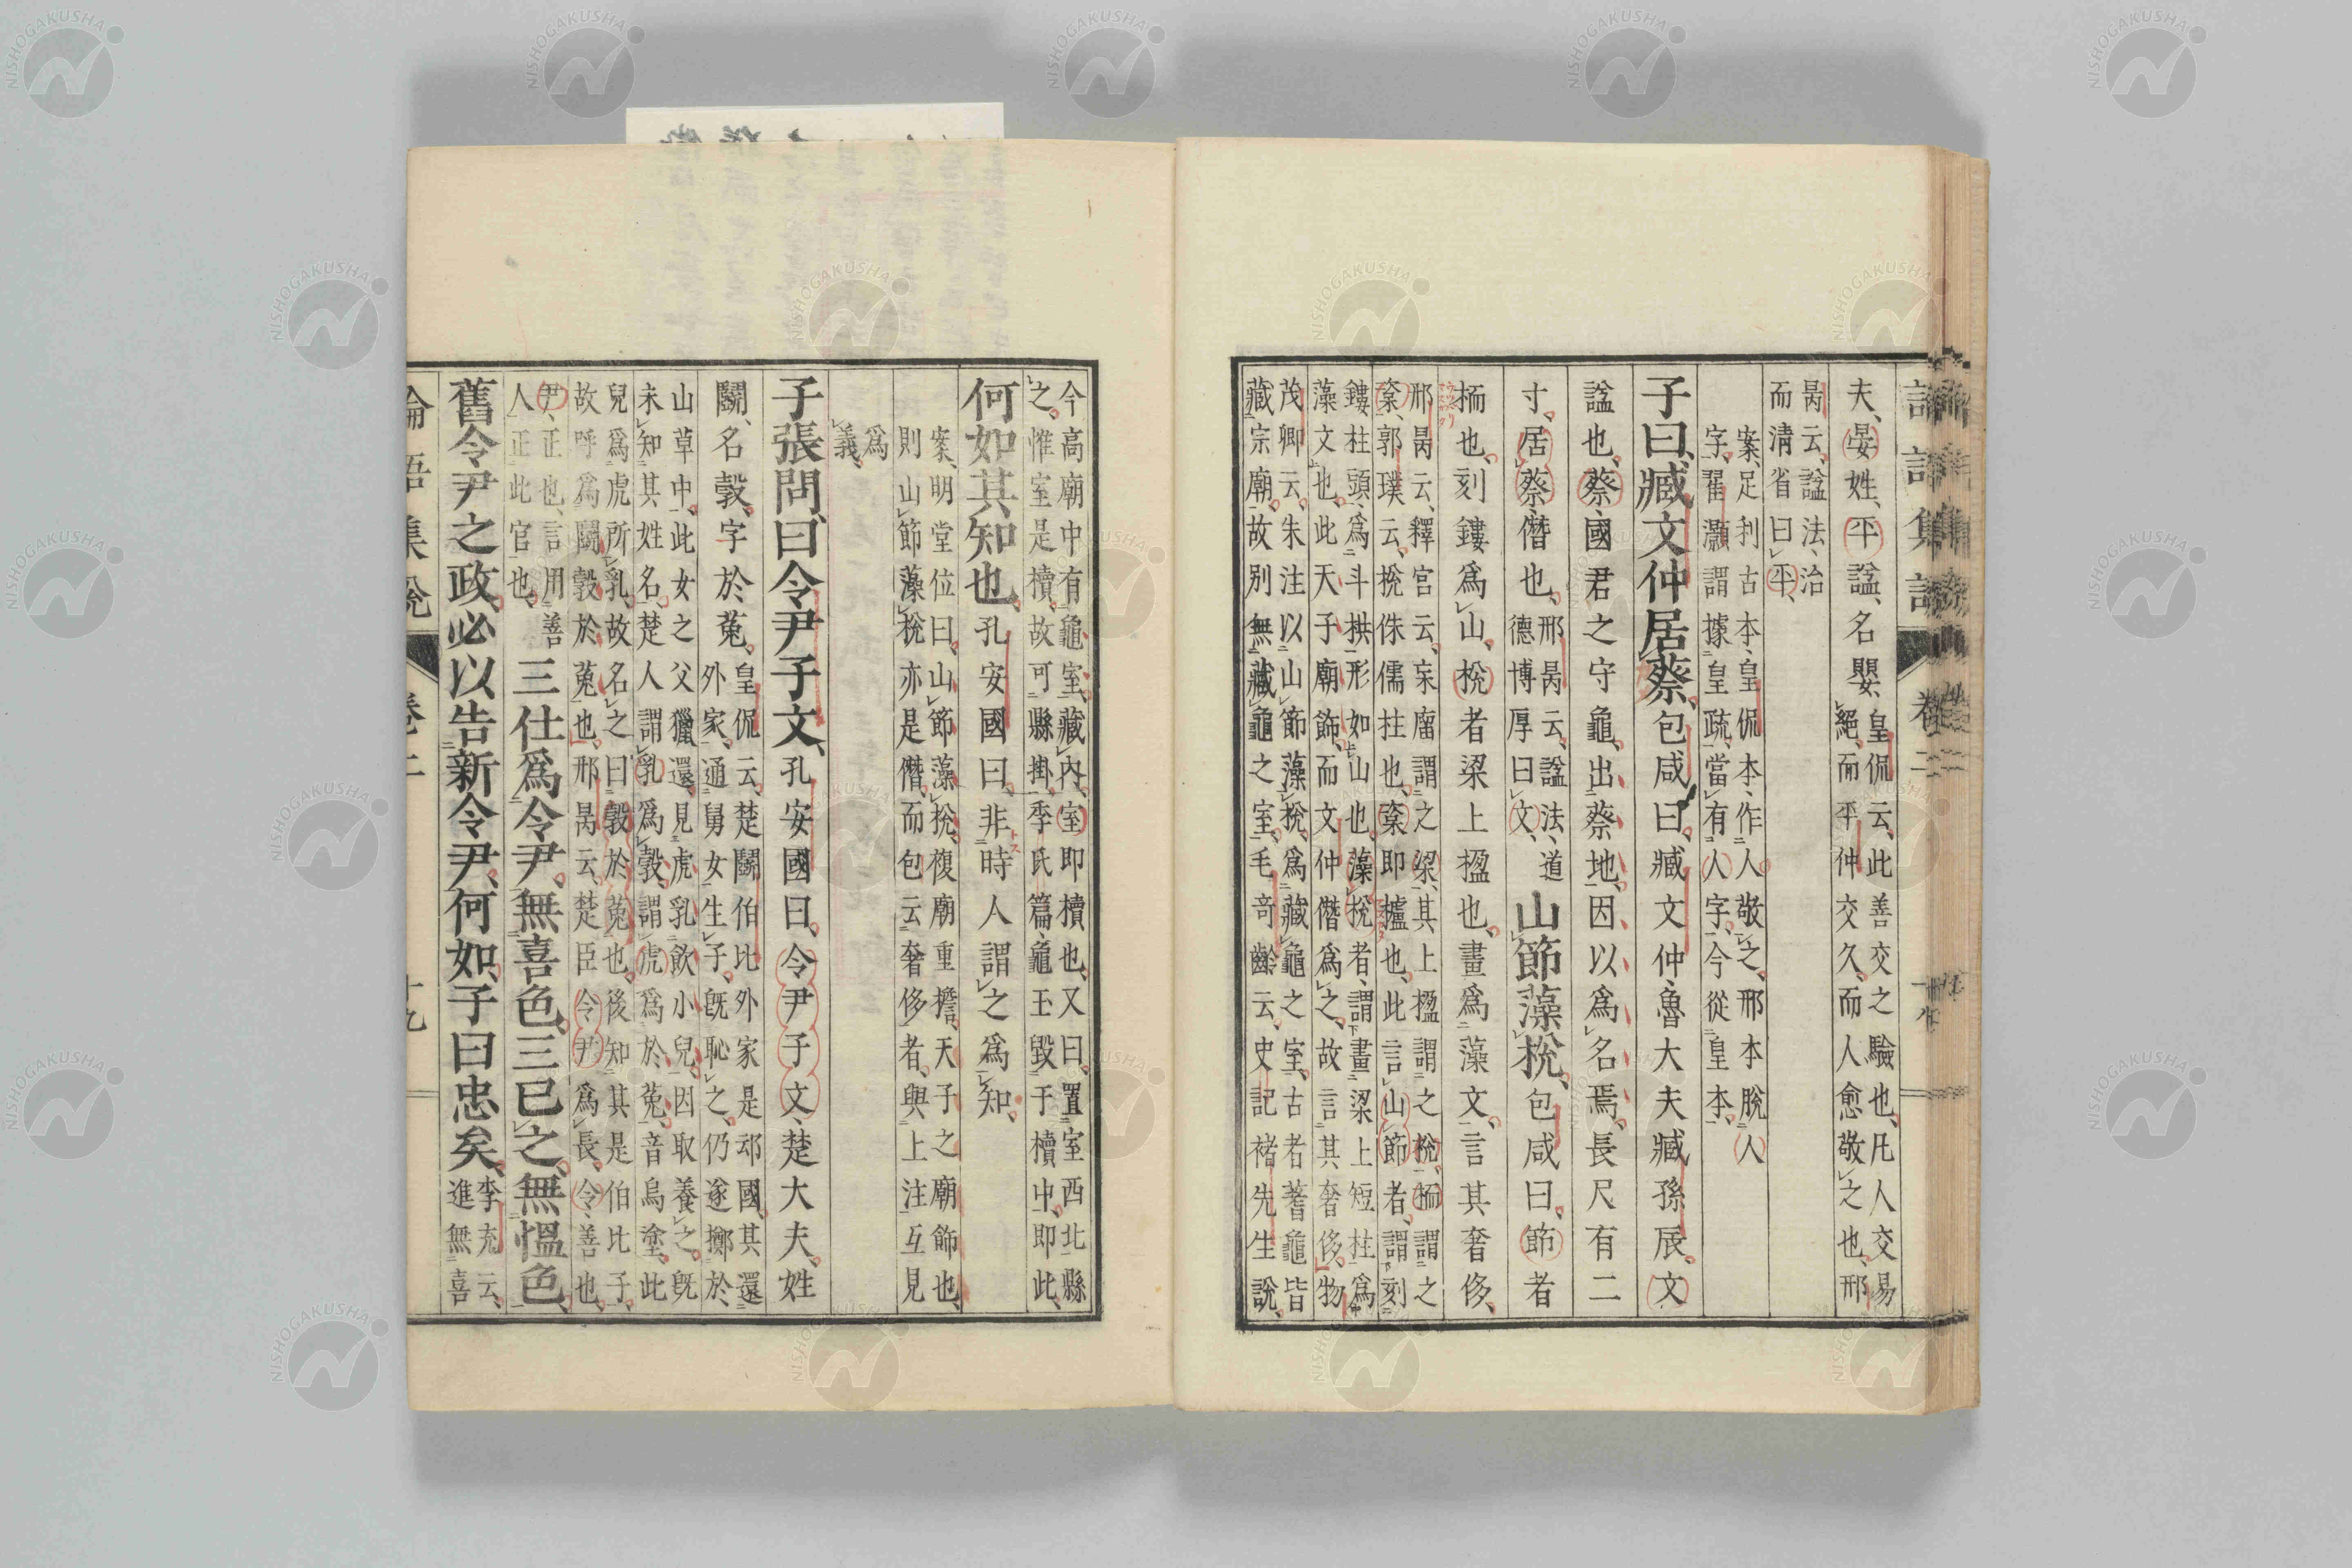 夫、晏姓、平諡、名嬰、皇侃云、此善交之驗也、凡人交易
絕、而平仲交久、而人愈敬之也、邢
昺云、諡法、治
而清省曰平、
案、足利古本、皇侃本、作人敬之、邢本脫人
字、翟灝謂據皇疏、當有人字、今從皇本、
子曰、臧文仲居蔡、包咸曰、臧文仲、魯大夫臧孫辰、文
諡也、蔡、國君之守龜、出蔡地、因以爲名焉、長尺有二
寸、居蔡僭也、邢昺云、諡法、道
德博厚曰文、
山節藻梲、包咸曰、節者
栭也、刻鏤爲山、梲者梁上楹也、畫爲藻文、言其奢侈、
邢昺云、釋宮云、杗廇謂之梁、其上楹謂之梲、栭謂之
楶、郭璞云、梲侏儒柱也、楶即櫨也、此言山節者、謂刻
鏤柱頭、爲斗拱形如山也、藻梲者、謂畫梁上短柱爲
藻文也、此天子廟飾、而文仲僭爲之、故言其奢侈、物
茂卿云、朱注以山節藻梲、爲藏龜之室、古者蓍龜皆
藏宗廟、故別無藏龜之室、毛奇齡云、史記褚先生說、
論語集說 卷二
今高廟中有龜室、藏內、室即櫝也、又曰、置室西北縣
之、惟室是櫝、故可縣掛、季氏篇、龜玉毀于櫝中、即此、
何如其知也、孔安國曰、非時人謂之爲知、
案、明堂位曰、山節藻梲、複廟重擔、天子之廟飾也、
則山節藻梲亦是僭、而包云奢侈者、與上注互見
爲
義、
子張問、曰令尹子文、孔安國曰、令尹子文、楚大夫、姓
鬭、名穀、字於菟、皇侃云、楚鬭伯比外家是䢵國、其還
外家、通舅女生子、既恥之、仍遂擲於
山草中、此女之父獵還、見虎乳飲小兒、因取養之、既
未知其姓名、楚人謂乳爲穀、謂虎爲於菟、音烏塗、此
兒爲虎所乳、故名之曰穀於菟也、後知其是伯比子、
故呼爲鬭穀於菟也、邢昺云、楚臣令尹爲長、令善也、
尹、正也、言用善
人正此官也、
三仕爲令尹、無喜色、三已之、無慍色、
舊令尹之政、必以告新令尹、何如、子曰忠矣、李充云、
進無喜
論語集說 卷二 十九
NISHOGAKUSHA